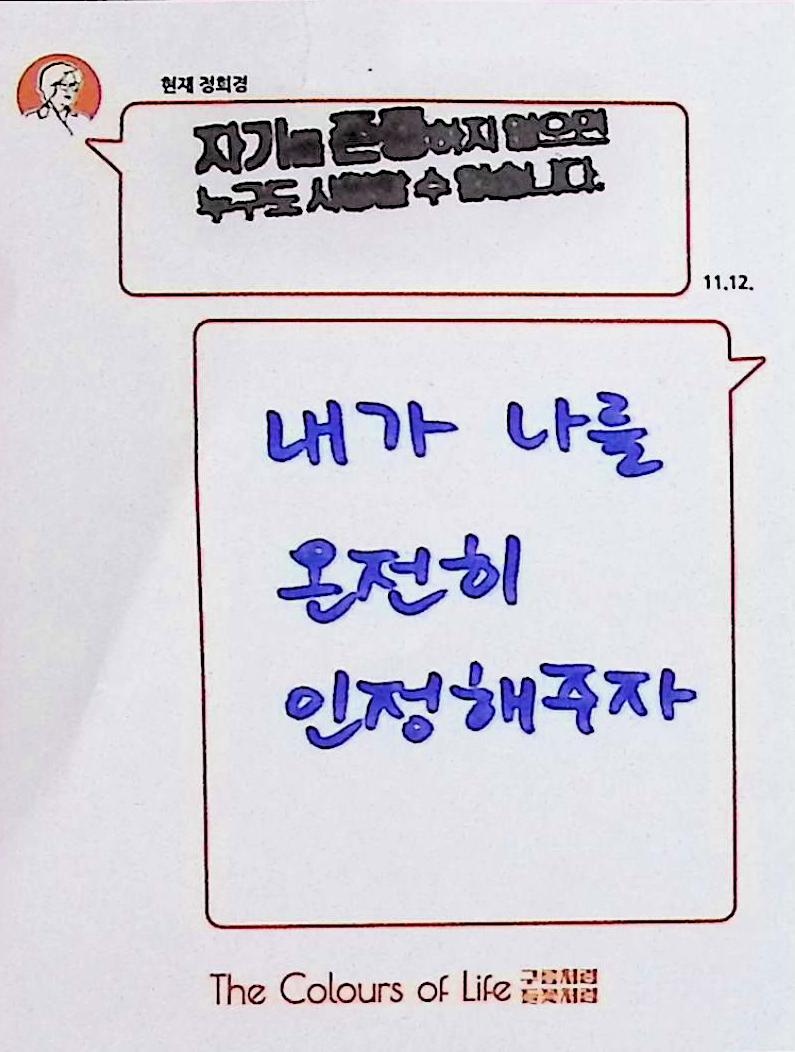 현재 정희경
자기를 존중하지 않으면
누구도 사랑할 수 없습니다.
11.12.
내가 나를
온전히
인정해주자
The Colours of Life 구름처럼
들꽃처럼